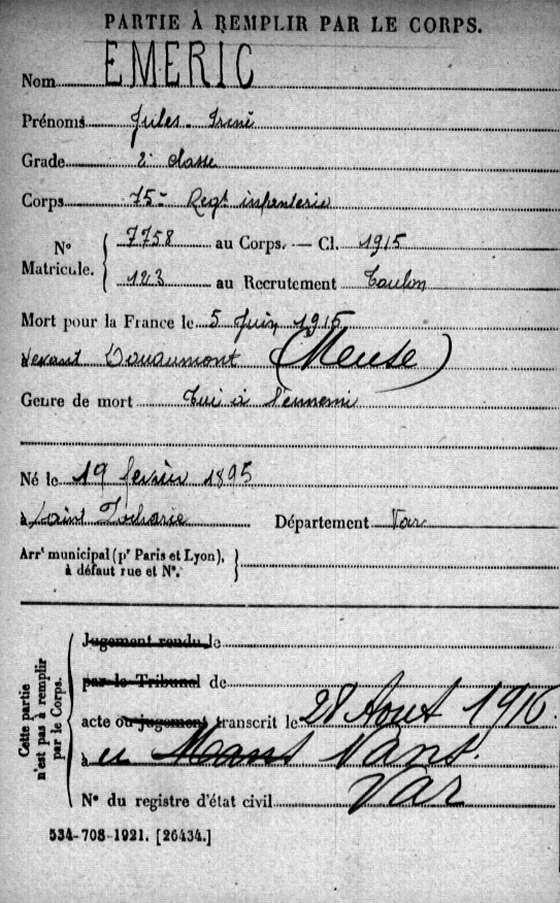 PARTIE À REMPLIR PAR LE CORPS.
Nom EMERIC
Prénoms Jules Irené
Grade 2e classe
Corps 75e Regt infanterie
No Matricule. 7758 au Corps. — Cl. 1915
123 au Recrutement Toulon
Mort pour la France le 5 Juin 1915
devant Douaumont (Meuse)
Genre de mort Tué à l'ennemi
Né le 19 fevrier 1895
à Saint Zacharie Département Var
Arrt municipal (pr Paris et Lyon),
à défaut rue et No.
Cette partie n'est pas à remplir par le Corps.
Jugement rendu le
par le Tribunal de
acte ou jugement transcrit le 28 Aout 1916.
à Nans.
No du registre d'état civil Var
534-708-1921. [26434.]